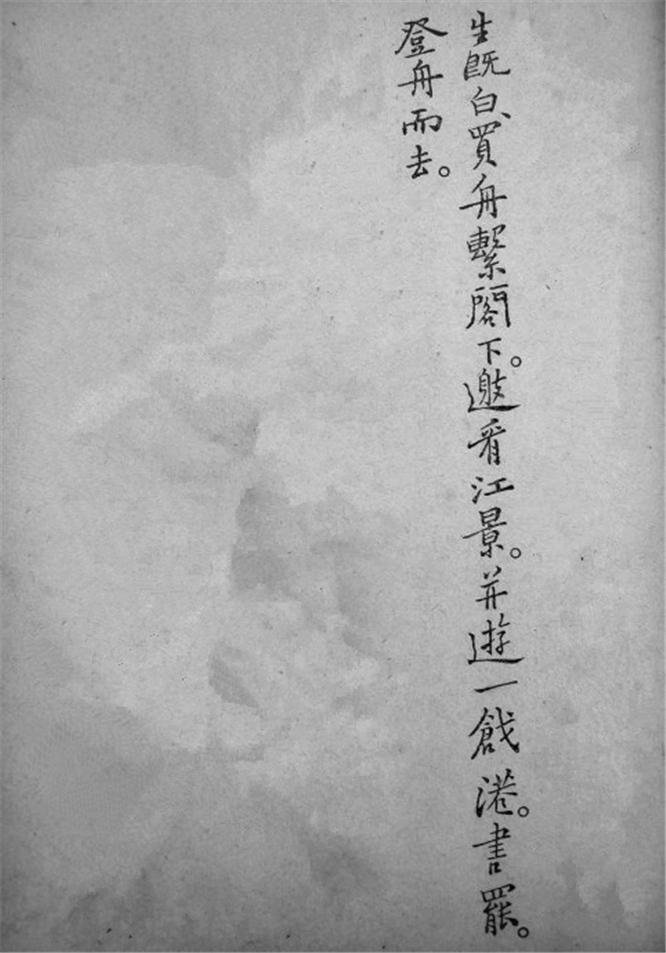 生既白、買舟繫閣下。邀看江景。并遊一戧港。書罷。
登舟而去。